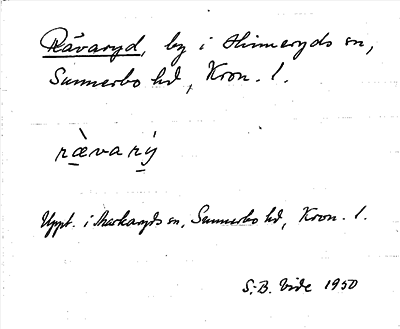 Råvaryd, by i Hinneryds sn,
Sunnerbo hd, Kron. l.
rævarý
Uppt. i Markaryds sn, Sunnerbo hd, Kron. l.
S.-B. Vide 1950